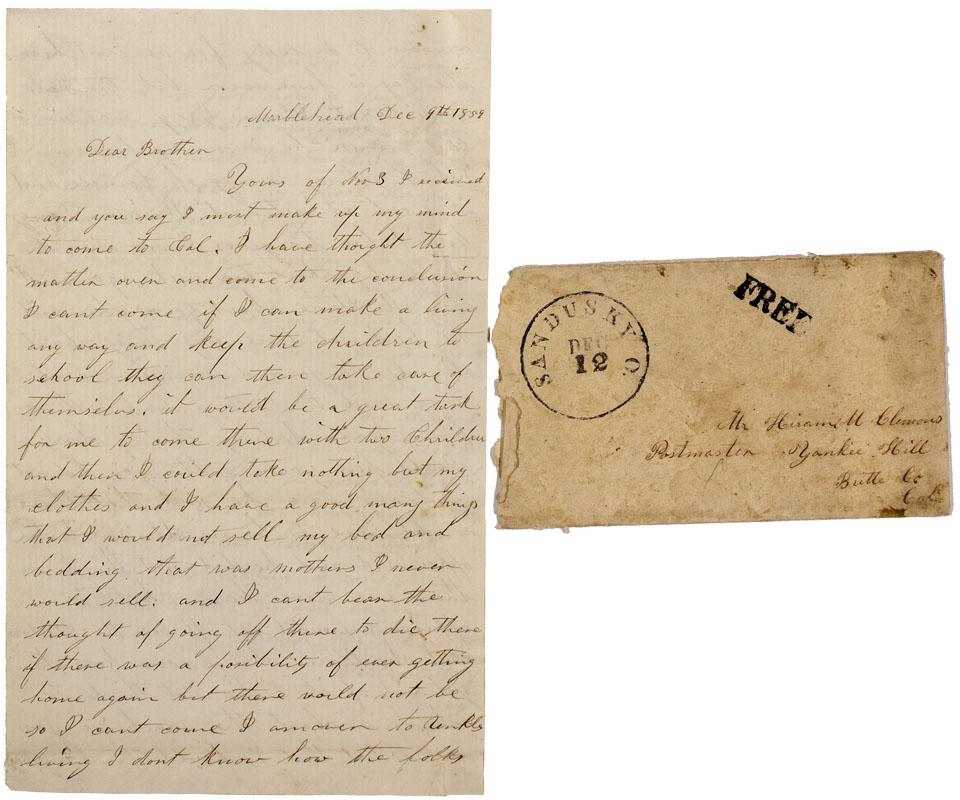 Marblehead Dec 9th 1859
Dear Brother
Yours of Nov 3 I received
and you say I must make up my mind
to come to Cal. I have thought the
matter over and come to the conclusion
I cant come if I can make a living
any way and keep the children to
school they can then take care of
themselvs. it would be a great task
for me to come there with two Children
and then I could take nothing but my
clothes and I have a good many things
that I would not sell my bed and
bedding that was mothers I never
would sell. and I cant bear the
thought of going off there to die there
if there was a posibility of ever getting
home again but there would not be
so I cant come I am over to
living I dont know how the folks
SANDUSKY O.
DEC
12
FREE
Mr Hiram M Clemons
Postmaster Yankee Hill
Butte Co
Cal.